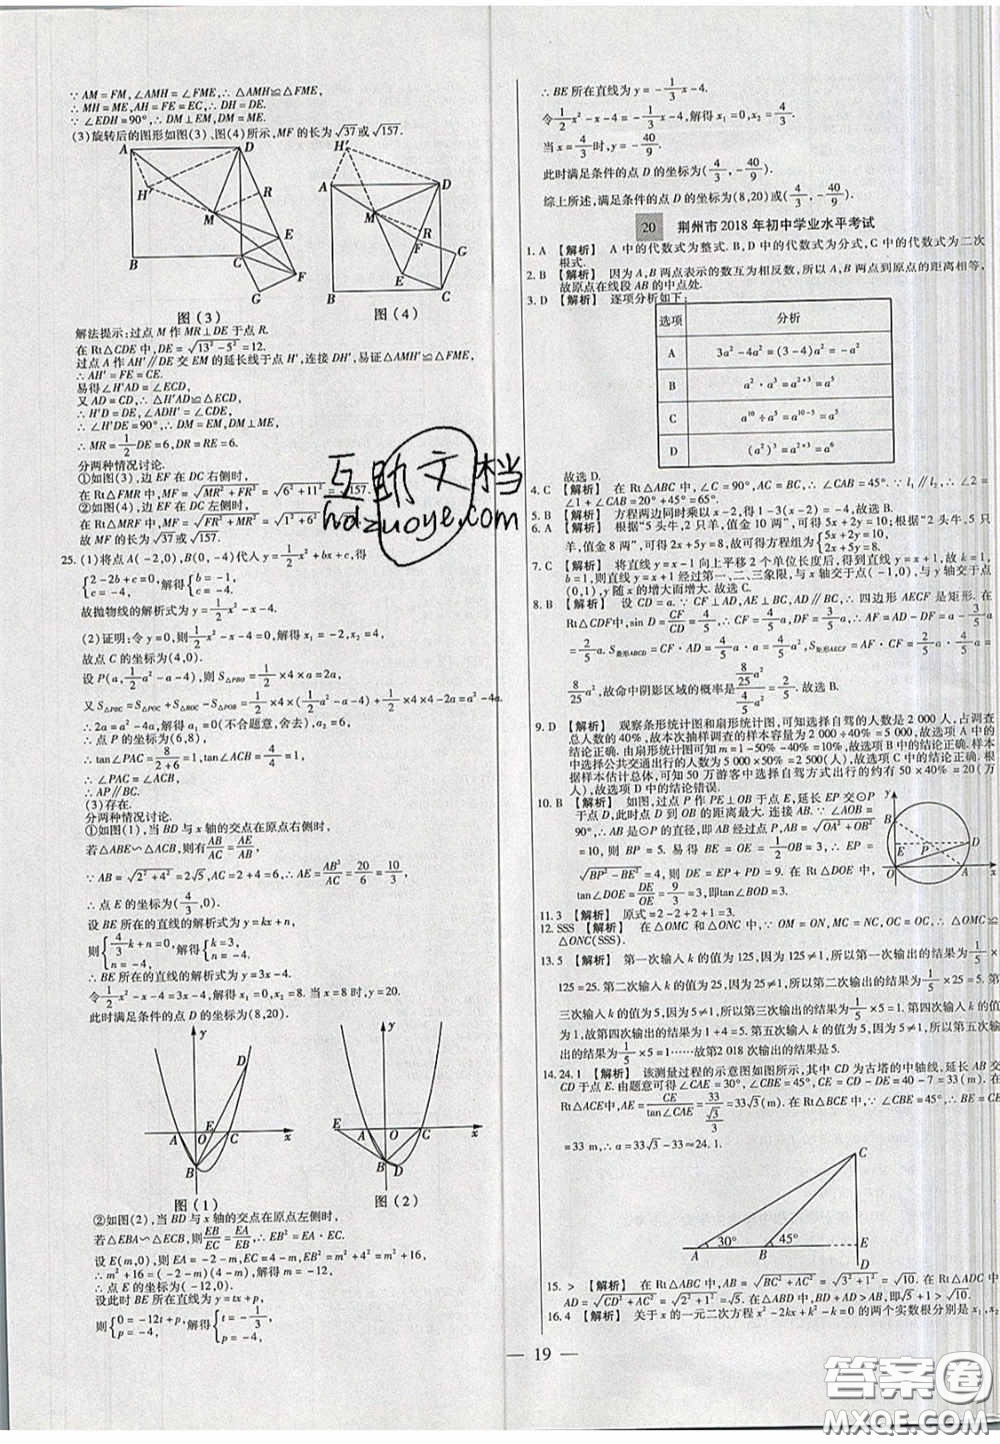 ∵ AM = FM, ∠AMH = ∠FME, ∴ △AMH ≌ △FME,
∴ MH = ME, AH = FE = EC, ∴ DH = DE.
∵ ∠EDH = 90°, ∴ DM ⊥ EM, DM = ME.
(3)旋转后的图形如图(3),图(4)所示,MF 的长为√37或√157.
A D H′ R M E B C G F
图(3)
H′ A D M R F G E B C
图(4)
解法提示:过点 M 作 MR ⊥ DE 于点 R.
在 Rt△CDE 中,DE = √(13² - 5²) = 12.
过点 A 作 AH′ // DE 交 EM 的延长线于点 H′,连接 DH′,易证△AMH′ ≌ △FME,
∴ AH′ = FE = CE.
易得∠H′AD = ∠ECD,
又 AD = CD, ∴ △H′AD ≌ △ECD,
∴ H′D = DE, ∠ADH′ = ∠CDE,
∴ ∠H′DE = 90°, ∴ DM = EM, DM ⊥ ME,
∴ MR = 1/2 DE = 6, DR = RE = 6.
分两种情况讨论.
①如图(3),边 EF 在 DC 右侧时,
在 Rt△FMR 中,MF = √(MR² + FR²) = √(6² + 11²) = √157.
②如图(4),边 EF 在 DC 左侧时,
在 Rt△MRF 中,MF = √(FR² + MR²) = √(1² + 6²)
故 MF 的长为√37或√157.
25. (1)将点 A(-2,0),B(0,-4)代入 y = 1/2 x² + bx + c,得
{2 - 2b + c = 0, c = -4, 解得{b = -1, c = -4.
故抛物线的解析式为 y = 1/2 x² - x - 4.
(2)证明:令 y = 0,则 1/2 x² - x - 4 = 0,解得 x₁ = -2, x₂ = 4,
故点 C 的坐标为(4,0).
设 P(a, 1/2 a² - a - 4),则 S△PBO = 1/2 × 4 × a = 2a,
又 S△POC = S△PBO + S△BOC - S△POB = 1/2 × 4 × (1/2 a² - a - 4) + 1/2 × 4 × 4 - 2a = a² - 4a,
∴ 2a = a² - 4a,解得 a₁ = 0(不合题意,舍去), a₂ = 6,
∴ 点 P 的坐标为(6,8),
∴ tan∠PAC = 8/(2+6) = 1, ∴ ∠PAC = 45°.
∵ tan∠ABO = 2/4 = 1/2
∴ PA // BC.
(3)存在.
分两种情况讨论.
①如图(1),当 BD 与 x 轴的交点在原点右侧时,
若△ABE ∽ △ACB,则有 AB/AC = AE/AB,
∵ AB = √(2² + 4²) = 2√5, ∴ AE = AB²/AC = 20/6 = 10/3,
∴ 点 E 的坐标为(4/3,0).
设 BE 所在的直线的解析式为 y = kx + n,
则{4/3 k + n = 0, n = -4, 解得{k = 3, n = -4.
∴ BE 所在的直线的解析式为 y = 3x - 4.
令 1/2 x² - x - 4 = 3x - 4,解得 x₁ = 0, x₂ = 8. 当 x = 8 时, y = 20.
此时满足条件的点 D 的坐标为(8,20).
y D E A O C x B
图(1)
y E A O C x B D
图(2)
②如图(2),当 BD 与 x 轴的交点在原点左侧时,
若△EBA ∽ △ECB,则有 EB/EC = EA/EB, ∴ EB² = EA · EC.
设 E(m,0),则 EA = -2 - m, EC = 4 - m, EB² = m² + 4² = m² + 16,
∴ m² + 16 = (-2 - m)(4 - m),解得 m = -12,
∴ 点 E 的坐标为(-12,0).
设此时 BE 所在直线为 y = tx + p,
则{0 = -12t + p, p = -4, 解得{t = -1/3, p = -4,
∴ BE 所在直线为 y = -1/3 x - 4.
令 1/2 x² - x - 4 = -1/3 x - 4,解得 x₁ = 0, x₂ = 4/3.
当 x = 4/3 时, y = -40/9.
此时满足条件的点 D 的坐标为(4/3, -40/9).
综上所述,满足条件的点 D 的坐标为(8,20)或(4/3, -40/9).
20 荆州市 2018 年初中学业水平考试
1. A 【解析】 A 中的代数式为整式. B,D 中的代数式为分式,C 中的代数式为二次根式.
2. B 【解析】 因为 A,B 两点表示的数互为相反数,所以 A,B 两点到原点的距离相等,故原点在线段 AB 的中点处.
3. D 【解析】 逐项分析如下:
选项 分析
A 3a² - 4a² = (3 - 4)a² = -a²
B a² · a³ = a²⁺³ = a⁵
C a¹⁰ ÷ a⁵ = a¹⁰⁻⁵ = a⁵
D (a²)³ = a²ˣ³ = a⁶
故选 D.
4. C 【解析】 在 Rt△ABC 中, ∠C = 90°, AC = BC, ∴ ∠CAB = 45°. ∵ l₁ // l₂, ∴ ∠2 = ∠1 + ∠CAB = 20° + 45° = 65°.
5. B 【解析】 方程两边同时乘以 x - 2,得 1 - 3(x - 2) = -4. 故选 B.
6. A 【解析】 根据“5 头牛,2 只羊,值金 10 两”,可得 5x + 2y = 10;根据“2 头牛,5 只羊,值金 8 两”,可得 2x + 5y = 8,故可得方程组为{5x + 2y = 10, 2x + 5y = 8.
7. C 【解析】 将直线 y = x - 1 向上平移 2 个单位长度后,得到直线 y = x + 1,故 k = 1, b = 1,则直线 y = x + 1 经过第一、二、三象限,与 x 轴交于点(-1,0),与 y 轴交于点(0,1), y 随 x 的增大而增大. 故选 C.
8. B 【解析】 设 CD = a. ∵ CF ⊥ AD, AE ⊥ BC, AD // BC, ∴ 四边形 AECF 是矩形. 在 Rt△CDF中, sin D = CF/CD = 4/5, ∴ CF = 4/5 a, DF = 3/5 a, ∴ AF = AD - DF = a - 3/5 a = 2/5 a. S菱形ABCD = CF · AD = 4/5 a · a = 4/5 a², S矩形AECF = AF · CF = 2/5 a · 4/5 a = 8/25 a²,故命中阴影区域的概率是 (8/25 a²)/(4/5 a²) = 2/5. 故选 B.
9. D 【解析】 观察条形统计图和扇形统计图,可知选择自驾的人数是 2 000 人,占调查总人数的 40%,故本次抽样调查的样本容量为 2 000 ÷ 40% = 5 000,故选项 A 中的结论正确. 由扇形统计图可知 m = 1 - 50% - 40% = 10%,故选项 B 中的结论正确. 样本中选择公共交通出行的人数为 5 000 × 50% = 2 500(人),故选项 C 中的结论正确. 根据样本估计总体,可知 50 万游客中选择自驾方式出行的约有 50 × 40% = 20(万人),故选项 D 中的结论错误.
10. B 【解析】 如图,过点 P 作 PE ⊥ OB 于点 E,延长 EP 交⊙P 于点 D,此时点 D 到 OB 的距离最大. 连接 AB. ∵ ∠AOB = 90°, ∴ AB 是⊙P 的直径,即 AB 经过点 P, AB = √(OA² + OB²) = 10,则 BP = 5. 易得 BE = OE = 1/2 OB = 3, ∴ EP = √(BP² - BE²) = 4,则 DE = EP + PD = 9. 在 Rt△DOE 中, tan∠DOE = DE/OE = 9/3 = 3,即tan∠BOD = 3.
y B E P D O A x
11. 3 【解析】 原式 = 2 - 2 + 2 + 1 = 3.
12. SSS 【解析】 在△OMC 和△ONC 中, OM = ON, MC = NC, OC = OC, ∴ △OMC ≌ △ONC(SSS).
13. 5 【解析】 第一次输入 k 的值为 125,因为 125 ≠ 1,所以第一次输出的结果为 1/5 × 125 = 25. 第二次输入 k 的值为 25,因为 25 ≠ 1,所以第二次输出的结果为 1/5 × 25 = 5. 第三次输入 k 的值为 5,因为 5 ≠ 1,所以第三次输出的结果为 1/5 × 5 = 1. 第四次输入 k 的值为 1,故第四次输出的结果为 1 + 4 = 5. 第五次输入 k 的值为 5,因为 5 ≠ 1,所以第五次输出的结果为 1/5 × 5 = 1……故第 2 018 次输出的结果是 5.
14. 24.1 【解析】 该测量过程的示意图如图所示,其中 CD 为古塔的中轴线,延长 AB 交 CD 于点 E. 由题意可得∠CAE = 30°, ∠CBE = 45°, CE = CD - DE = 40 - 7 = 33(m). 在 Rt△ACE中, AE = CE/tan∠CAE = 33/(√3/3) = 33√3(m). 在 Rt△BCE 中, ∵ ∠CBE = 45°, ∴ BE = CE = 33 m, ∴ a = 33√3 - 33 ≈ 24.1.
C 30° 45° A B E D
15. > 【解析】 在 Rt△ABC 中, AB = √(BC² + AC²) = √(3² + 1²) = √10. 在 Rt△ADC 中, AD = √(CD² + AC²) = √(2² + 1²) = √5. 在△ABD 中, BD + AD > AB,即√5 + 1 > √10.
16. 4 【解析】 关于 x 的一元二次方程 x² - 2kx + k² - k = 0 的两个实数根分别是 x₁, x₂
— 19 —
互助文档
hdzuoye.com
答案圈
MXQE.COM